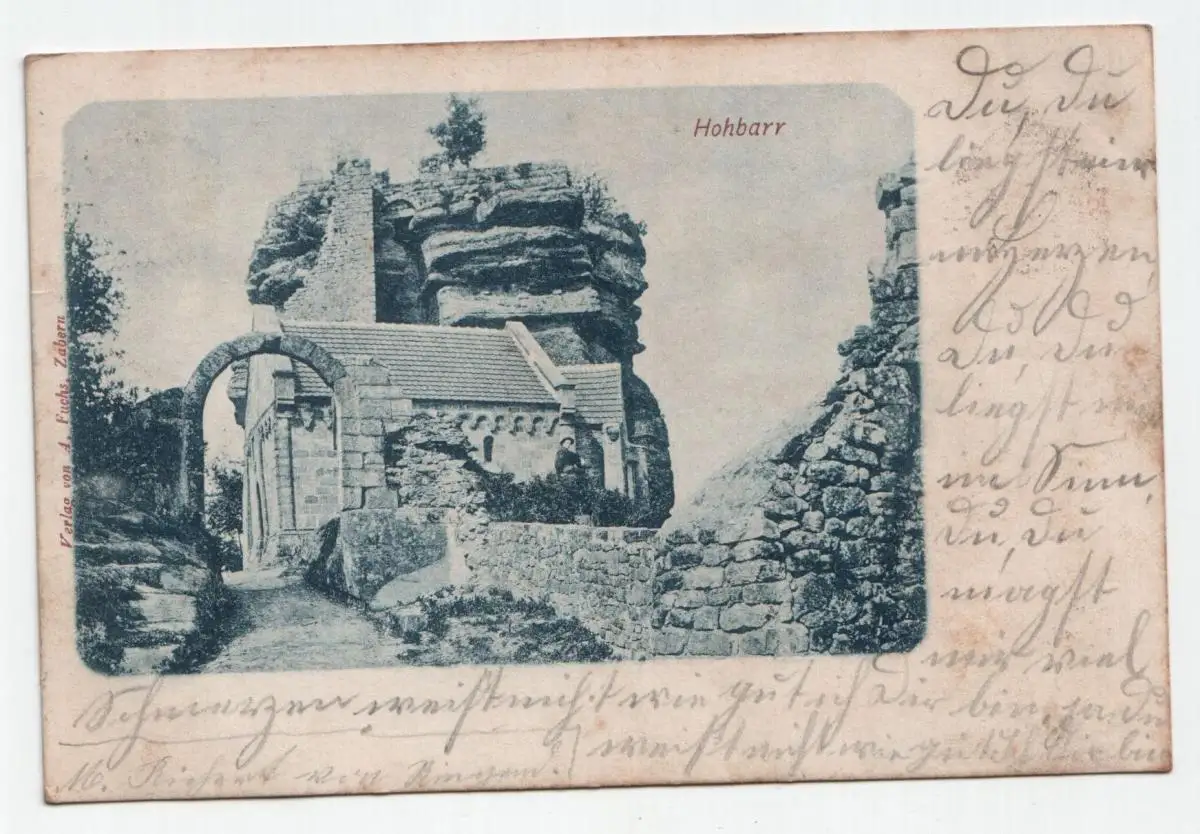 Hohbarr
Verlag von A. Fuchs, Zabern
Du, Du
liegst mir
im Herzen,
Du, Du
liegst mir
im Sinn,
Du, Du
magst
mir viel
Schmerzen weist nicht wie gut ich Dir bin, ja Du
weist nicht wie gut ich Dir bin
M. von